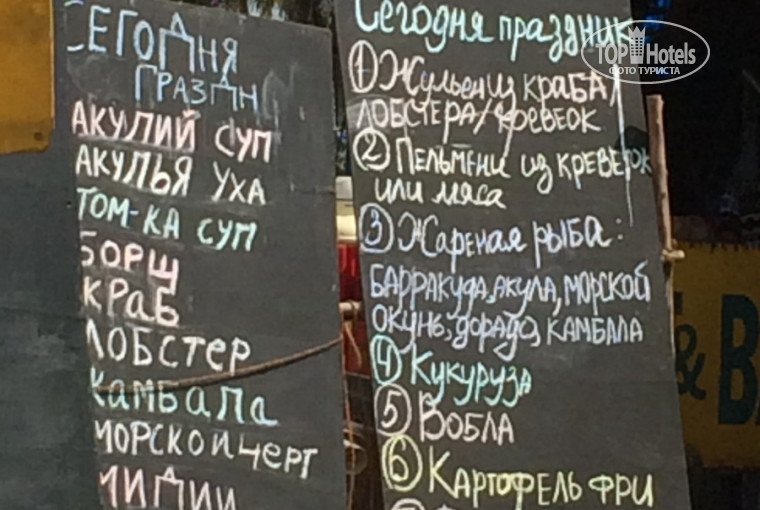 СЕГОДНЯ
ПРАЗДН
АКУЛИЙ СУП
АКУЛЬЯ УХА
ТОМ-КА СУП
БОРЩ
КРАБ
ЛОБСТЕР
КАМБАЛА
МОРСКОЙ ЧЕРТ
МИДИИ
Сегодня праздник
1 Жульен из краба/
лобстера/креветок
2 Пельмени из креветок
или мяса
3 Жареная рыба:
барракуда, акула, морской
окунь, дорадо, камбала
4 Кукуруза
5 Вобла
6 Картофель фри
TOP Hotels
ФОТО ТУРИСТА
& B